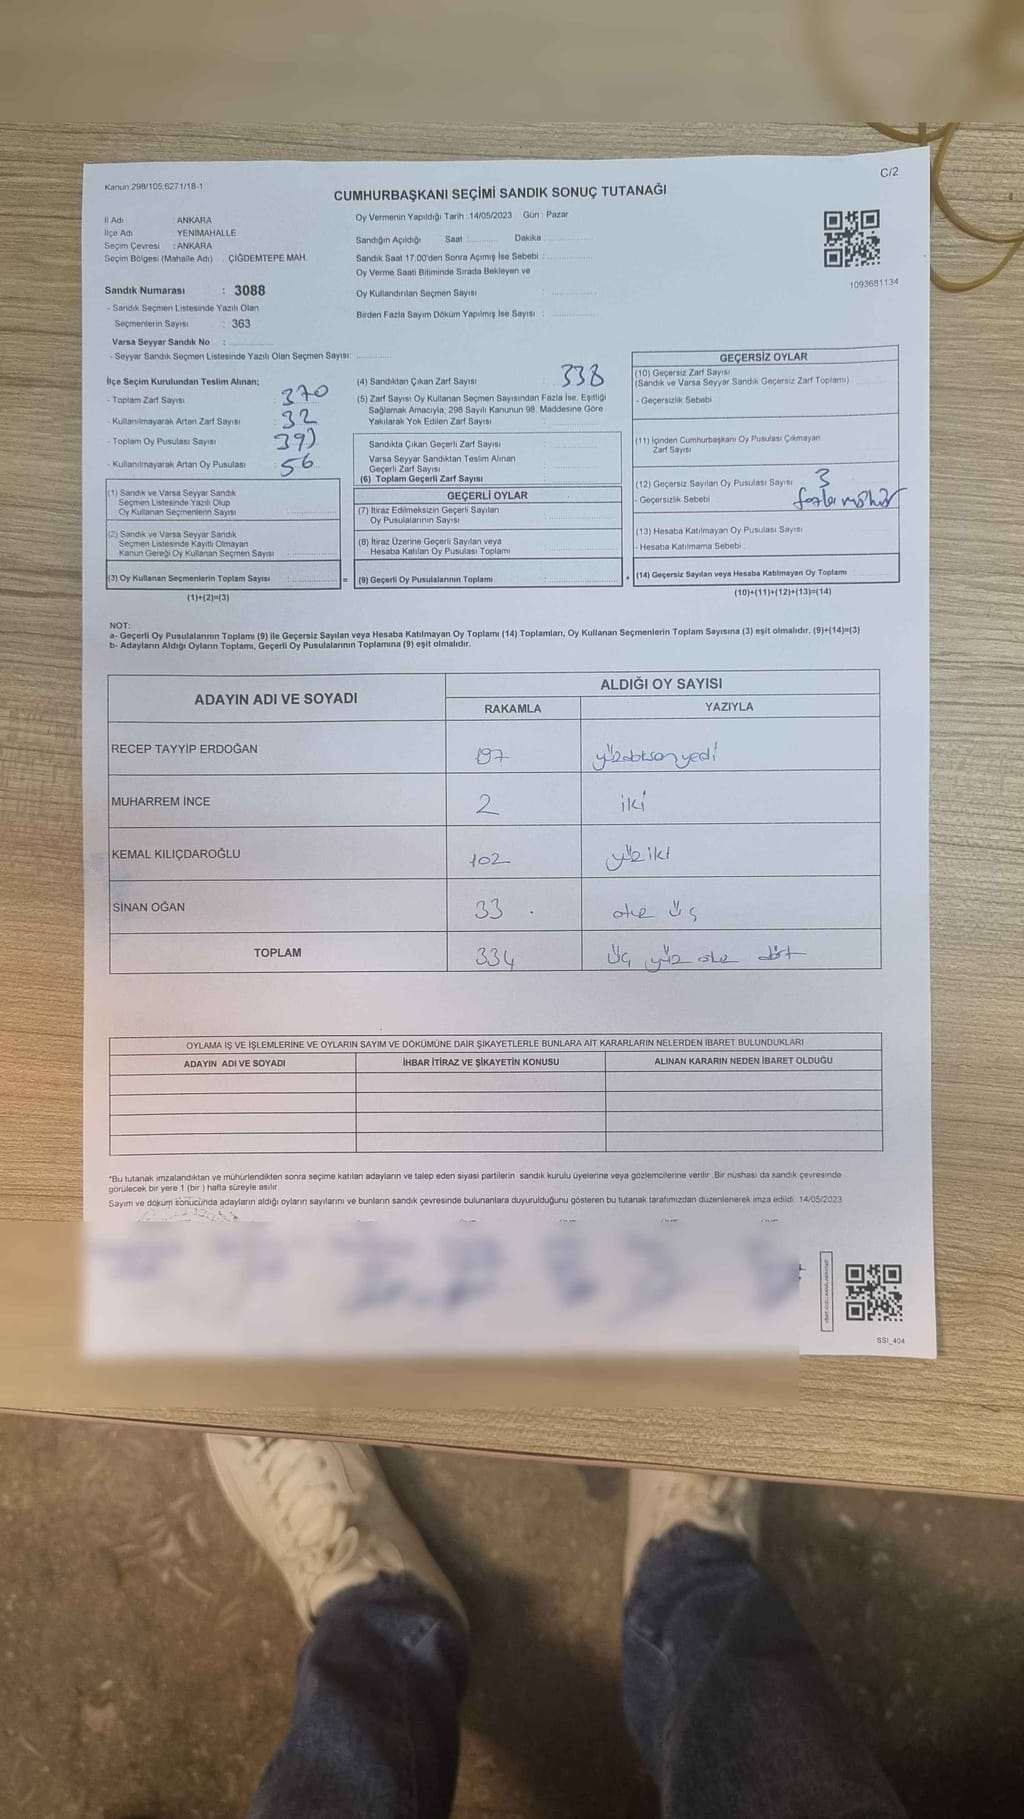 Kanun 298/105,6271/18-1
C/2
CUMHURBAŞKANI SEÇİMİ SANDIK SONUÇ TUTANAĞI
İl Adı ANKARA
İlçe Adı YENİMAHALLE
Seçim Çevresi : ANKARA
Seçim Bölgesi (Mahalle Adı) ÇİĞDEMTEPE MAH.
Sandık Numarası : 3088
- Sandık Seçmen Listesinde Yazılı Olan
Seçmenlerin Sayısı : 363
Varsa Seyyar Sandık No :
- Seyyar Sandık Seçmen Listesinde Yazılı Olan Seçmen Sayısı:
Oy Vermenin Yapıldığı Tarih : 14/05/2023 Gün : Pazar
Sandığın Açıldığı Saat : Dakika :
Sandık Saat 17:00'den Sonra Açımış İse Sebebi :
Oy Verme Saati Bitiminde Sırada Bekleyen ve
Oy Kullandırılan Seçmen Sayısı :
Birden Fazla Sayım Döküm Yapılmış İse Sayısı :
1093681134
İlçe Seçim Kurulundan Teslim Alınan;
- Toplam Zarf Sayısı : 370
- Kullanılmayarak Artan Zarf Sayısı : 32
- Toplam Oy Pusulası Sayısı
- Kullanılmayarak Artan Oy Pusulası : 56
(1) Sandık ve Varsa Seyyar Sandık
Seçmen Listesinde Yazılı Olup
Oy Kullanan Seçmenlerin Sayısı
(2) Sandık ve Varsa Seyyar Sandık
Seçmen Listesinde Kayıtlı Olmayan
Kanun Gereği Oy Kullanan Seçmen Sayısı
(3) Oy Kullanan Seçmenlerin Toplam Sayısı :
(1)+(2)=(3)
(4) Sandıktan Çıkan Zarf Sayısı : 338
(5) Zarf Sayısı Oy Kullanan Seçmen Sayısından Fazla İse, Eşitliği
Sağlamak Amacıyla; 298 Sayılı Kanunun 98. Maddesine Göre
Yakılarak Yok Edilen Zarf Sayısı
Sandıkta Çıkan Geçerli Zarf Sayısı
Varsa Seyyar Sandıktan Teslim Alınan
Geçerli Zarf Sayısı
(6) Toplam Geçerli Zarf Sayısı
GEÇERLİ OYLAR
(7) İtiraz Edilmeksizin Geçerli Sayılan
Oy Pusulalarının Sayısı
(8) İtiraz Üzerine Geçerli Sayılan veya
Hesaba Katılan Oy Pusulası Toplamı
= (9) Geçerli Oy Pusulalarının Toplamı :
GEÇERSİZ OYLAR
(10) Geçersiz Zarf Sayısı
(Sandık ve Varsa Seyyar Sandık Geçersiz Zarf Toplamı)
- Geçersizlik Sebebi
(11) İçinden Cumhurbaşkanı Oy Pusulası Çıkmayan
Zarf Sayısı
(12) Geçersiz Sayılan Oy Pusulası Sayısı 3
- Geçersizlik Sebebi : fazla mühür
(13) Hesaba Katılmayan Oy Pusulası Sayısı
- Hesaba Katılmama Sebebi :
+ (14) Geçersiz Sayılan veya Hesaba Katılmayan Oy Toplamı
(10)+(11)+(12)+(13)=(14)
NOT:
a- Geçerli Oy Pusulalarının Toplamı (9) ile Geçersiz Sayılan veya Hesaba Katılmayan Oy Toplamı (14) Toplamları, Oy Kullanan Seçmenlerin Toplam Sayısına (3) eşit olmalıdır. (9)+(14)=(3)
b- Adayların Aldığı Oyların Toplamı, Geçerli Oy Pusulalarının Toplamına (9) eşit olmalıdır.
ADAYIN ADI VE SOYADI ALDIĞI OY SAYISI
RAKAMLA YAZIYLA
RECEP TAYYİP ERDOĞAN 197
MUHARREM İNCE 2 iki
KEMAL KILIÇDAROĞLU 102 yüziki
SİNAN OĞAN 33 otuz üç
TOPLAM 334 üç yüz otuz dört
OYLAMA İŞ VE İŞLEMLERİNE VE OYLARIN SAYIM VE DÖKÜMÜNE DAİR ŞİKAYETLERLE BUNLARA AİT KARARLARIN NELERDEN İBARET BULUNDUKLARI
ADAYIN ADI VE SOYADI İHBAR İTİRAZ VE ŞİKAYETİN KONUSU ALINAN KARARIN NEDEN İBARET OLDUĞU
*Bu tutanak imzalandıktan ve mühürlendikten sonra seçime katılan adayların ve talep eden siyasi partilerin sandık kurulu üyelerine veya gözlemcilerine verilir. Bir nüshası da sandık çevresinde
görülecek bir yere 1 (bir) hafta süreyle asılır.
Sayım ve döküm sonucunda adayların aldığı oyların sayılarını ve bunların sandık çevresinde bulunanlara duyurulduğunu gösteren bu tutanak tarafımızdan düzenlenerek imza edildi. 14/05/2023
SSI_404